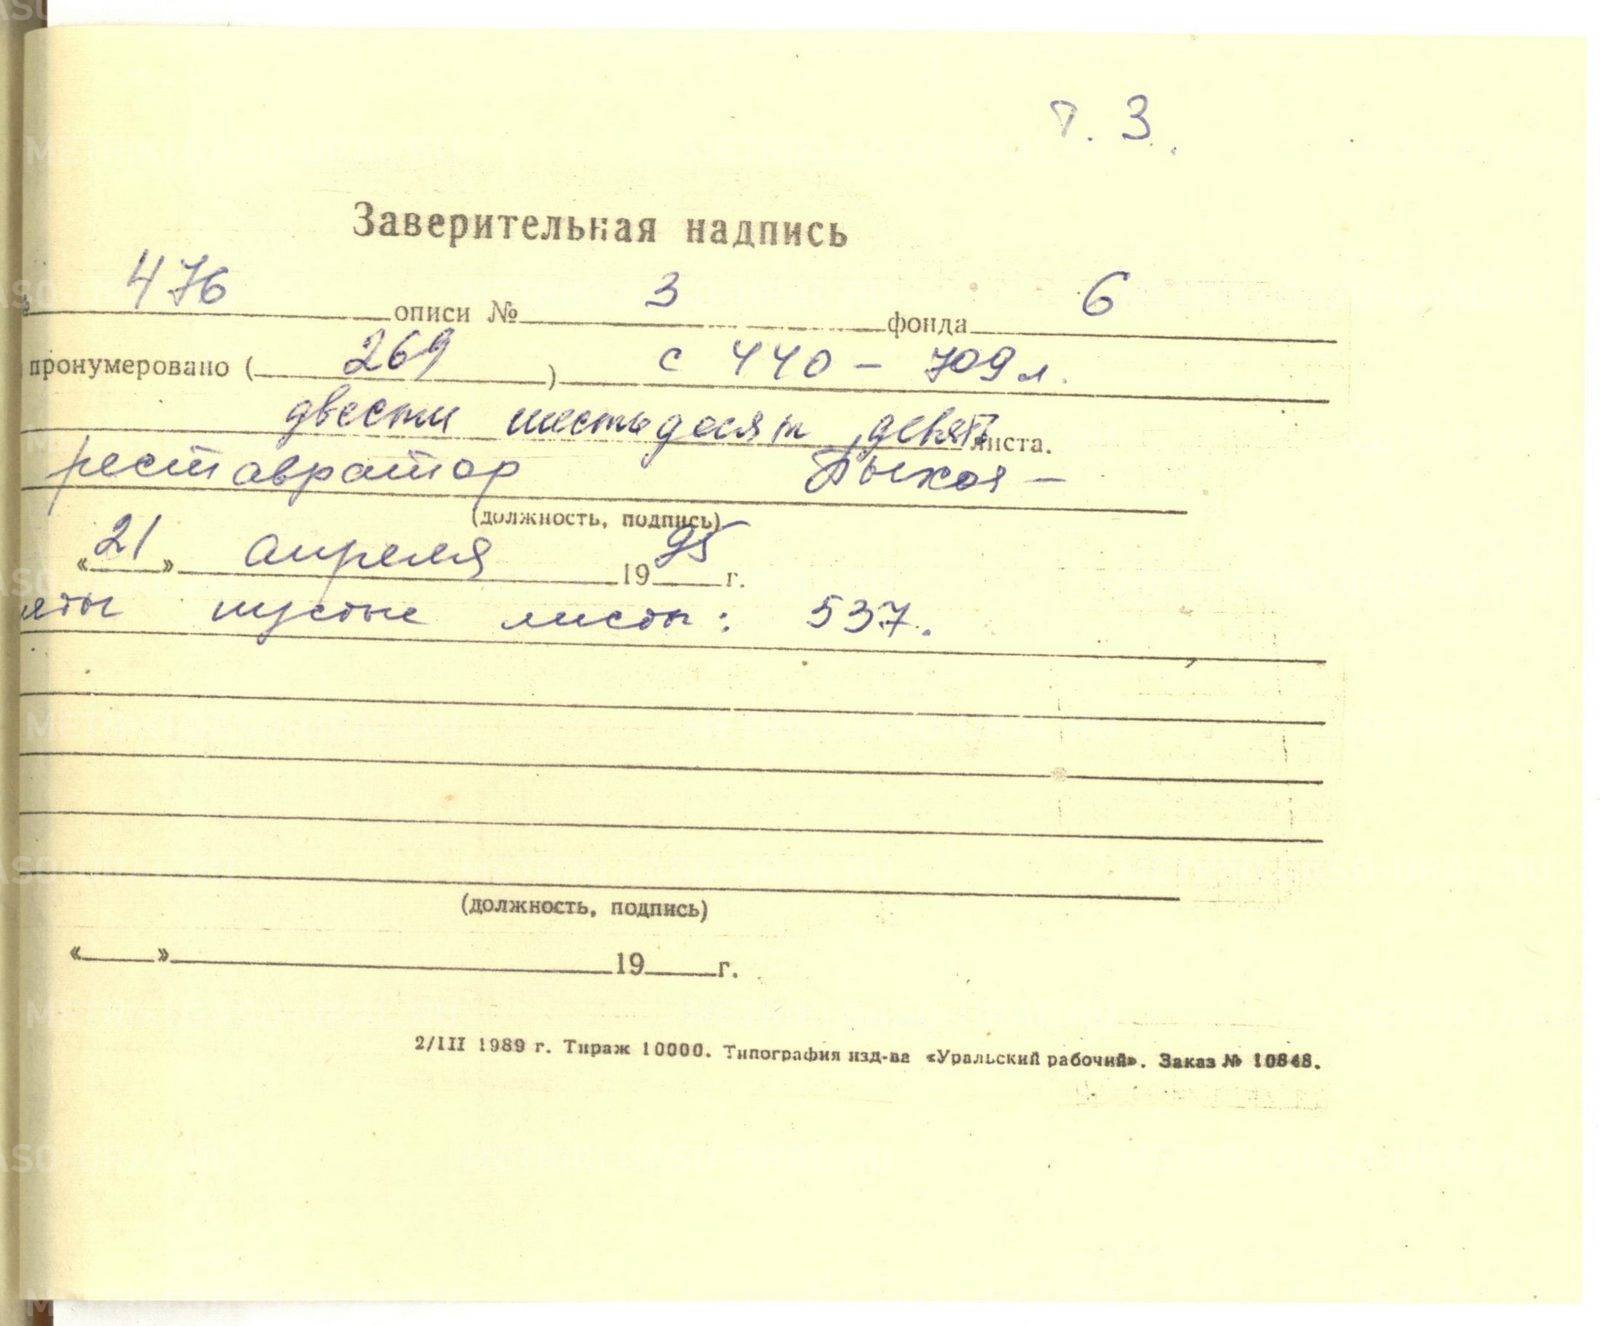 т. 3.
Заверительная надпись
476 описи № 3 фонда 6
пронумеровано ( 269 ) с 440 – 709 л.
двести шестьдесят девять листа.
реставратор
(должность, подпись)
«21» апреля 1995 г.
пустые листы: 537.
(должность, подпись)
« » 19 г.
2/III 1989 г. Тираж 10000. Типография изд-ва «Уральский рабочий». Заказ № 10848.